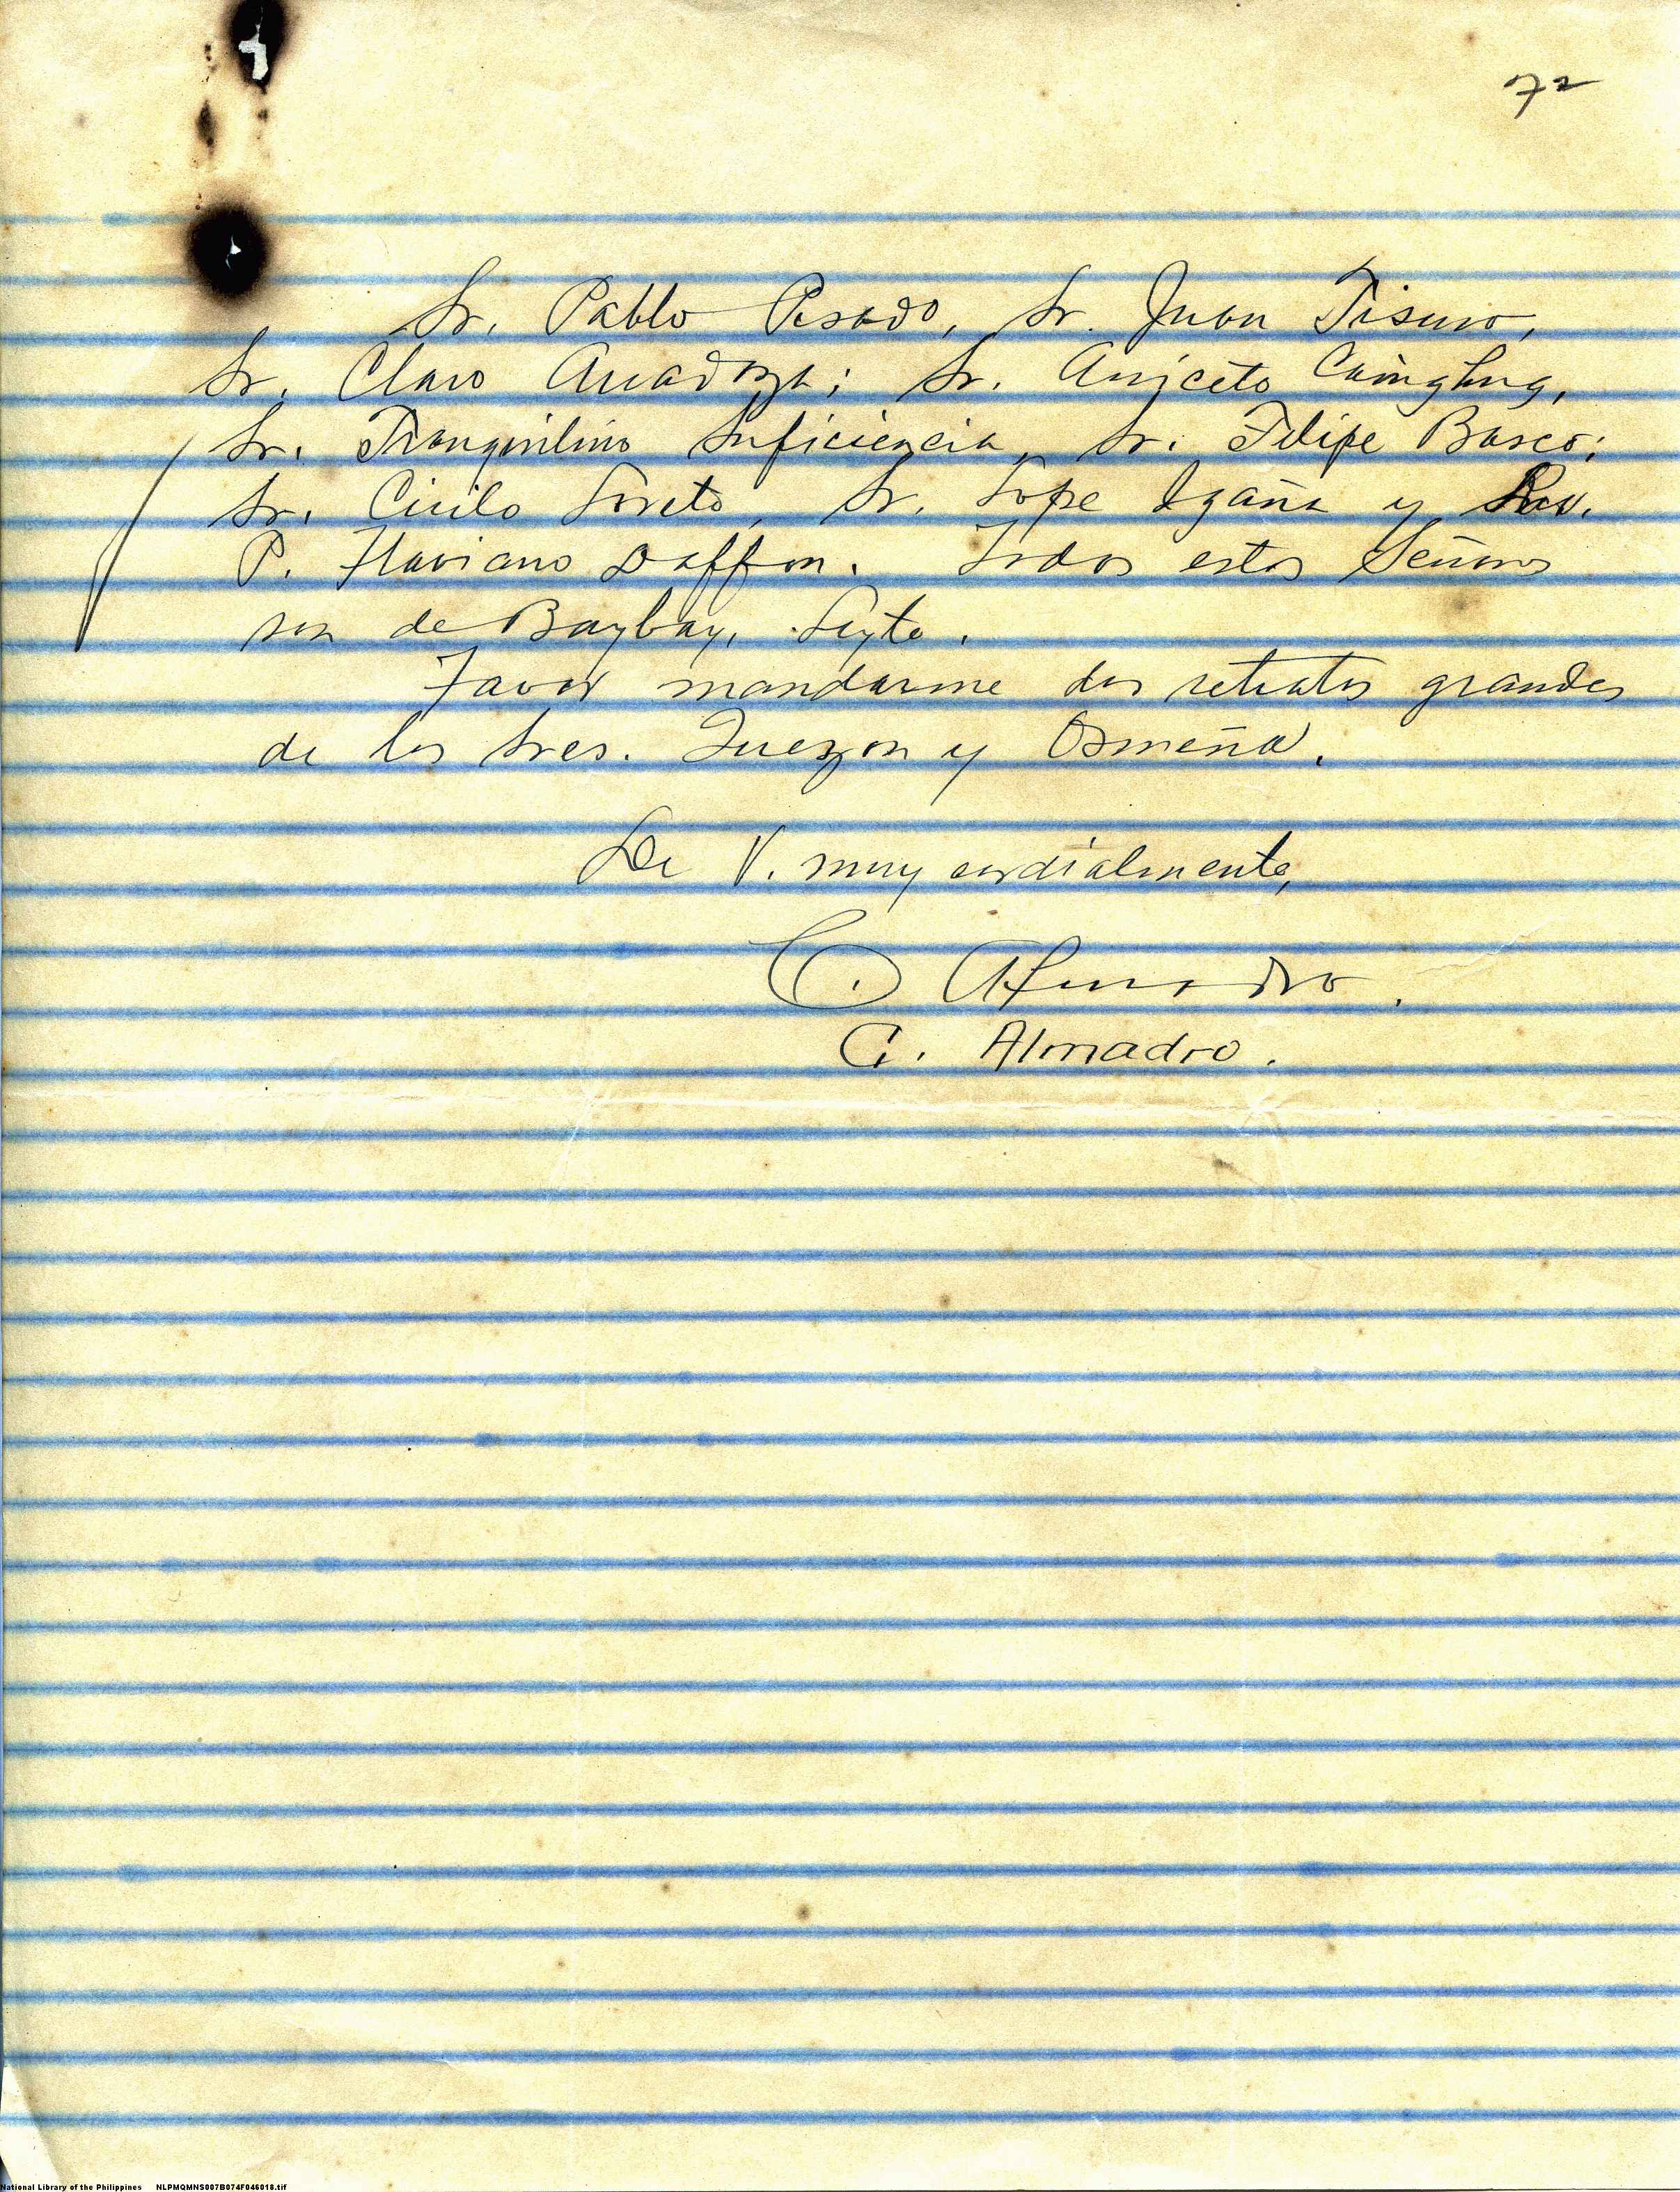 72
Sr. Pablo Posado, Sr. Juan Tisuro,
Sr. Claro; Sr. Aniceto
Sr. Tranquilino Suficiencia, Sr. Felipe Basco;
Sr. Cirilo Loreto, Sr. Lope Igaña y Rev.
P. Flaviano Daffon. Todos estos Señores
son de Baybay, Leyte.
Favor mandarme dos retratos grandes
de los Sres. Quezon y Osmeña.
De V. muy cordialmente,
C. Almadro.
C. Almadro.
National Library of the Philippines NLPMQMNS007B074F046018.tif